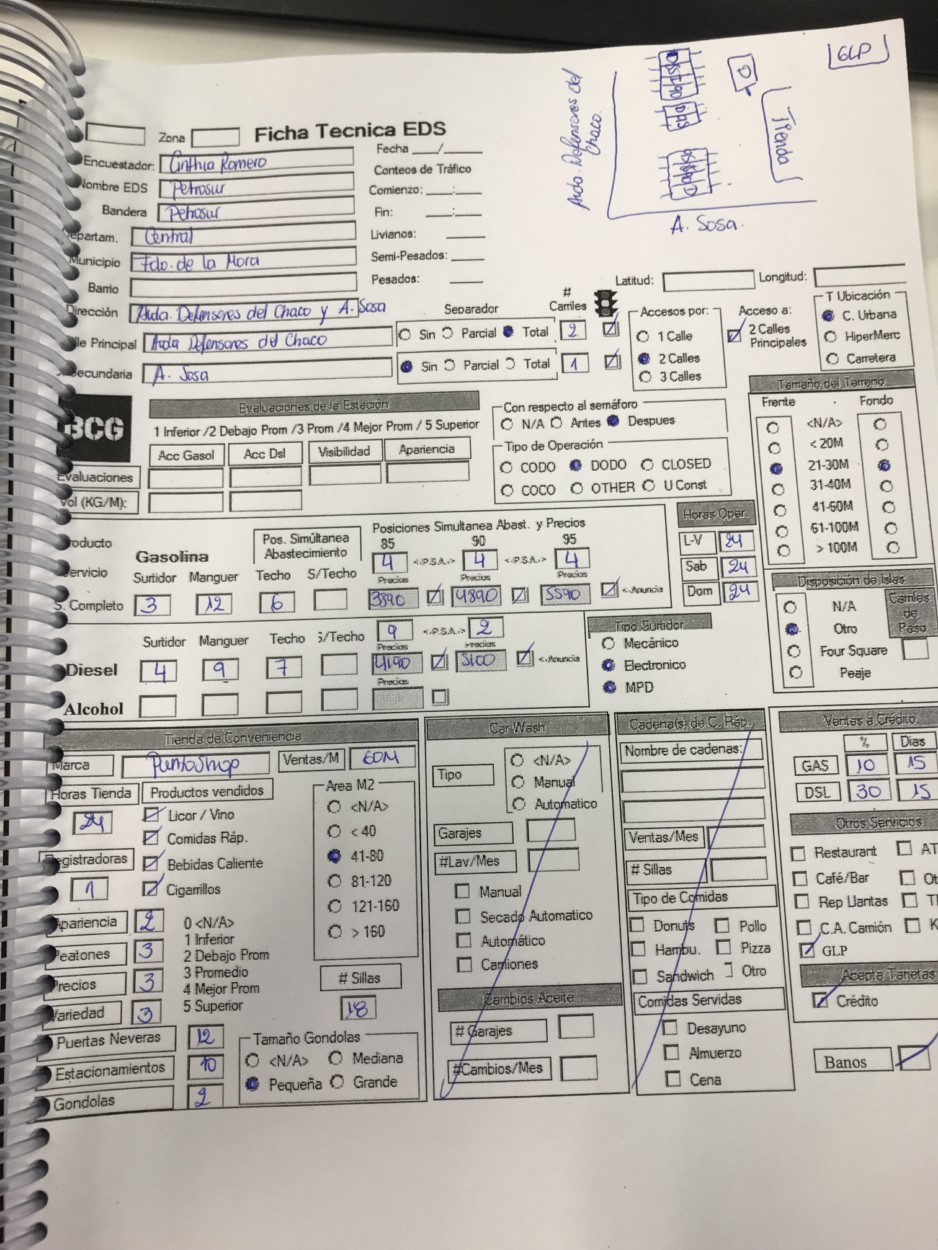 GLP
Avda. Defensores del Chaco
Tienda
A. Sosa.
Zona
Ficha Tecnica EDS
Fecha ___/___
Encuestador: Cinthia Romero
Conteos de Tráfico
Nombre EDS Petrosur
Comienzo: ___:___
Bandera Petrosur
Fin: ___:___
Departam. Central
Livianos: ____
Municipio Fdo. de la Mora
Semi-Pesados: ____
Barrio
Pesados: ____
Latitud: Longitud:
Dirección Avda. Defensores del Chaco y A. Sosa
Separador # Carriles
Calle Principal Avda Defensores del Chaco
Sin Parcial Total 2
Secundaria A. Sosa
Sin Parcial Total 1
Accesos por:
1 Calle
2 Calles
3 Calles
Acceso a:
2 Calles Principales
T Ubicación
C. Urbana
HiperMerc
Carretera
BCG
Evaluaciones de la Estación
1 Inferior /2 Debajo Prom /3 Prom /4 Mejor Prom / 5 Superior
Acc Gasol Acc Dsl Visibilidad Apariencia
Evaluaciones
Vol (KG/M):
Con respecto al semáforo
N/A Antes Despues
Tipo de Operación
CODO DODO CLOSED
COCO OTHER U Const
Tamaño del Terreno
Frente Fondo
<N/A>
< 20M
21-30M
31-40M
41-60M
61-100M
> 100M
Producto Gasolina
Pos. Simúltanea Abastecimiento
Posiciones Simultanea Abast. y Precios
85 90 95
4 <.P.S.A.> 4 <.P.S.A.> 4
Servicio Surtidor Manguer Techo S/Techo Precios Precios Precios
S. Completo 3 12 6 3890 4890 5590 <-Anuncia
Horas Oper.
L-V 24
Sab 24
Dom 24
Surtidor Manguer Techo S/Techo 9 <.P.S.A.> 2
Precios Precios
Diesel 4 9 7 4190 5100 <-Anuncia
Precios
Alcohol
Tipo Surtidor
Mecánico
Electronico
MPD
Disposición de Islas
N/A
Otro
Four Square
Peaje
Carriles de Paso
Tienda de Conveniencia
Marca Puntoshop Ventas/M EDM
Horas Tienda Productos vendidos
24
Licor / Vino
Comidas Ráp.
Registradoras Bebidas Caliente
1 Cigarrillos
Area M2
<N/A>
< 40
41-80
81-120
121-160
> 160
Apariencia 2
Peatones 3
Precios 3
Variedad 3
0 <N/A>
1 Inferior
2 Debajo Prom
3 Promedio
4 Mejor Prom
5 Superior
# Sillas
18
Puertas Neveras 12
Estacionamientos 10
Gondolas 2
Tamaño Gondolas
<N/A> Mediana
Pequeña Grande
Car Wash
Tipo
<N/A>
Manual
Automatico
Garajes
#Lav/Mes
Manual
Secado Automatico
Automático
Camiones
Cambios Aceite
# Garajes
#Cambios/Mes
Cadena(s) de C. Ráp.
Nombre de cadenas:
Ventas/Mes
# Sillas
Tipo de Comidas
Donuts Pollo
Hambu. Pizza
Sandwich Otro
Comidas Servidas
Desayuno
Almuerzo
Cena
Ventas a Crédito
% Dias
GAS 10 15
DSL 30 15
Otros Servicios
Restaurant AT
Café/Bar Ot
Rep Llantas
C.A. Camión K
GLP
Acepta Tarjetas
Crédito
Banos